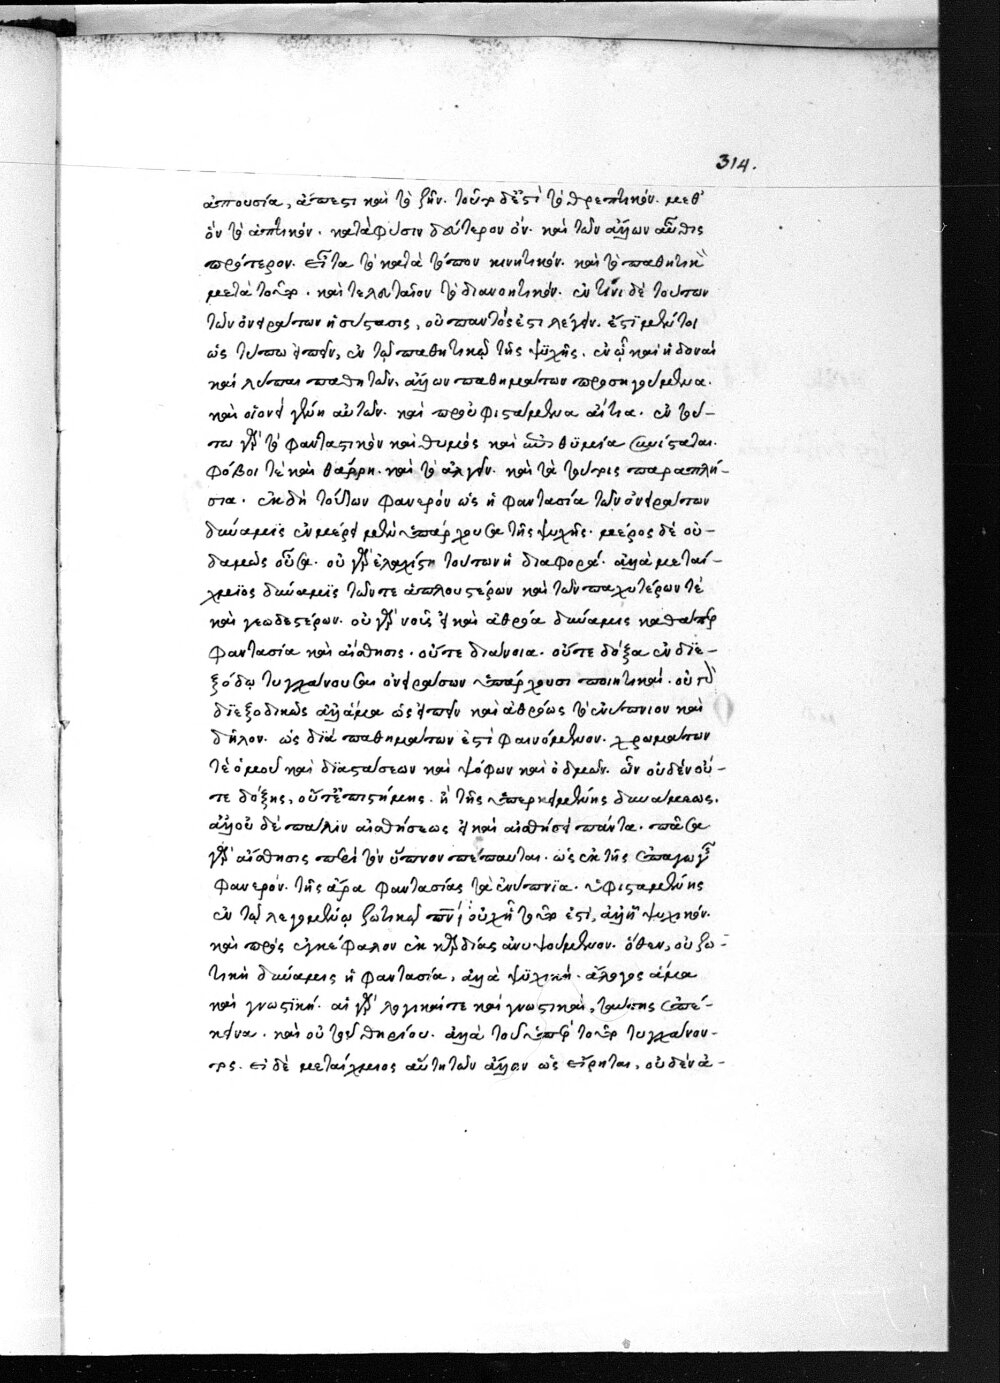 314.
ἀπουσία, ἄπεστι καὶ τὸ ζῆν. τοῦτο δέ ἐστὶ τὸ θρεπτικόν. μεθ'
ὃν τὸ ἁπτικόν. κατὰ φύσιν δεύτερον ὄν. καὶ τῶν ἄλλων αὖθις
πρότερον. εἶτα τὸ κατὰ τόπον κινητικόν. καὶ τὸ παθητικὸν
μετὰ τοῦτο. καὶ τελευταῖον τὸ διανοητικόν. ἐν τίνι δὲ τούτων
τῶν ὀνειράτων ἡ σύστασις, οὐ παντός ἐστι λέγειν. ἔστι μέντοι
ὡς τύπῳ εἰπεῖν, ἐν τῷ παθητικῷ τῆς ψυχῆς. ἐν ᾧ καὶ ἡδοναὶ
καὶ λύπαι παθητῶν, ἄλλων παθημάτων προσηγούμεναι.
καὶ οἱονεὶ γένη αὐτῶν. καὶ προϋφιστάμενα αἴτια. ἐν τού-
τω γὰρ τὸ φανταστικὸν καὶ θυμὸς καὶ ἐπιθυμία συνίσταται.
φόβοι τὲ καὶ θάρρη. καὶ τὸ ἀλγεῖν. καὶ τὰ τούτοις παραπλή-
σια. ἐκ δὴ τούτων φανερὸν ὡς ἡ φαντασία τῶν ὀνειράτων
δύναμις ἐν μέρει μὲν ὑπάρχουσα τῆς ψυχῆς. μέρος δὲ οὐ-
δαμῶς οὖσα. οὐ γὰρ ἐλαχίστη τούτων ἡ διαφορά. ἀλλὰ μεταί-
χμιος δύναμις τῶν τε ἁπλουστέρων καὶ τῶν παχυτέρων τὲ
καὶ γεωδεστέρων. οὐ γὰρ νοῦς εἰ καὶ ἀθρόα δύναμις καθάπερ
φαντασία καὶ αἴσθησις. οὔτε διάνοια. οὔτε δόξα ἐν διε-
ξόδω τυγχάνουσαι ὀνειράτων ὑπάρχουσι ποιητικαί. οὐ γὰρ
διεξοδικῶς ἀλλ' ἅμα ὡς εἰπεῖν καὶ ἀθρόως τὸ ἐνύπνιον καὶ
δῆλον. ὡς διὰ παθημάτων ἐστὶ φαινόμενον. χρωμάτων
τὲ ὁμοῦ καὶ διαστάσεων καὶ ψόφων καὶ ὀδμῶν. ὧν οὐδὲν οὔ-
τε δόξης, οὔτ' ἐπιστήμης. ἢ τῆς ὑπερκειμένης δυνάμεως.
ἀλλ' οὐδὲ πάλιν αἰσθήσεως εἰ καὶ αἰσθήσει πάντα. πᾶσα
γὰρ αἴσθησις περὶ τὸν ὕπνον πέπαυται. ὡς ἐκ τῆς ἐπαγωγῆς
φανερόν. τῆς ἄρα φαντασίας τὰ ἐνύπνια. ὑφισταμένης
ἐν τῷ λεγομένῳ ζωτικῷ πνεύματι οὐχὶ τοῦτο ἐστὶ, ἀλλὰ ψυχικόν.
καὶ πρὸς ἐγκέφαλον ἐκ καρδίας ἀνυψούμενον. ὅθεν, οὐ ζω-
τικὴ δύναμις ἡ φαντασία, ἀλλὰ ψυχική. ἄλογος ἅμα
καὶ γνωστική. αἱ γὰρ λογικαί τε καὶ γνωστικαὶ, ταύτης ἐπέ-
κεινα. καὶ οὐ τοῦ θηρίου. ἀλλὰ τοῦ ὑπὲρ τοῦτο τυγχάνου-
σαι. εἰ δὲ μεταίχμιος αὕτη τῶν ἄλλων ὡς εἴρηται, οὐδὲν ἀ-